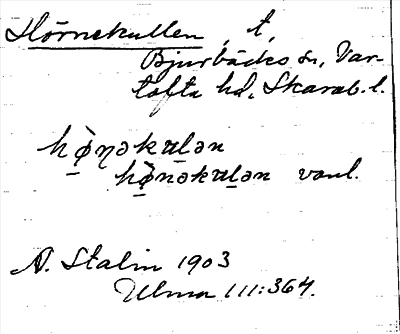 Hörnekullen, t,
Bjurbäcks sn, Var-
tofta hd, Skarab. l.
hø̀ŋəkulən
hø̀nəkulən vanl.
A. Stalin 1903
Ulma 111:364.